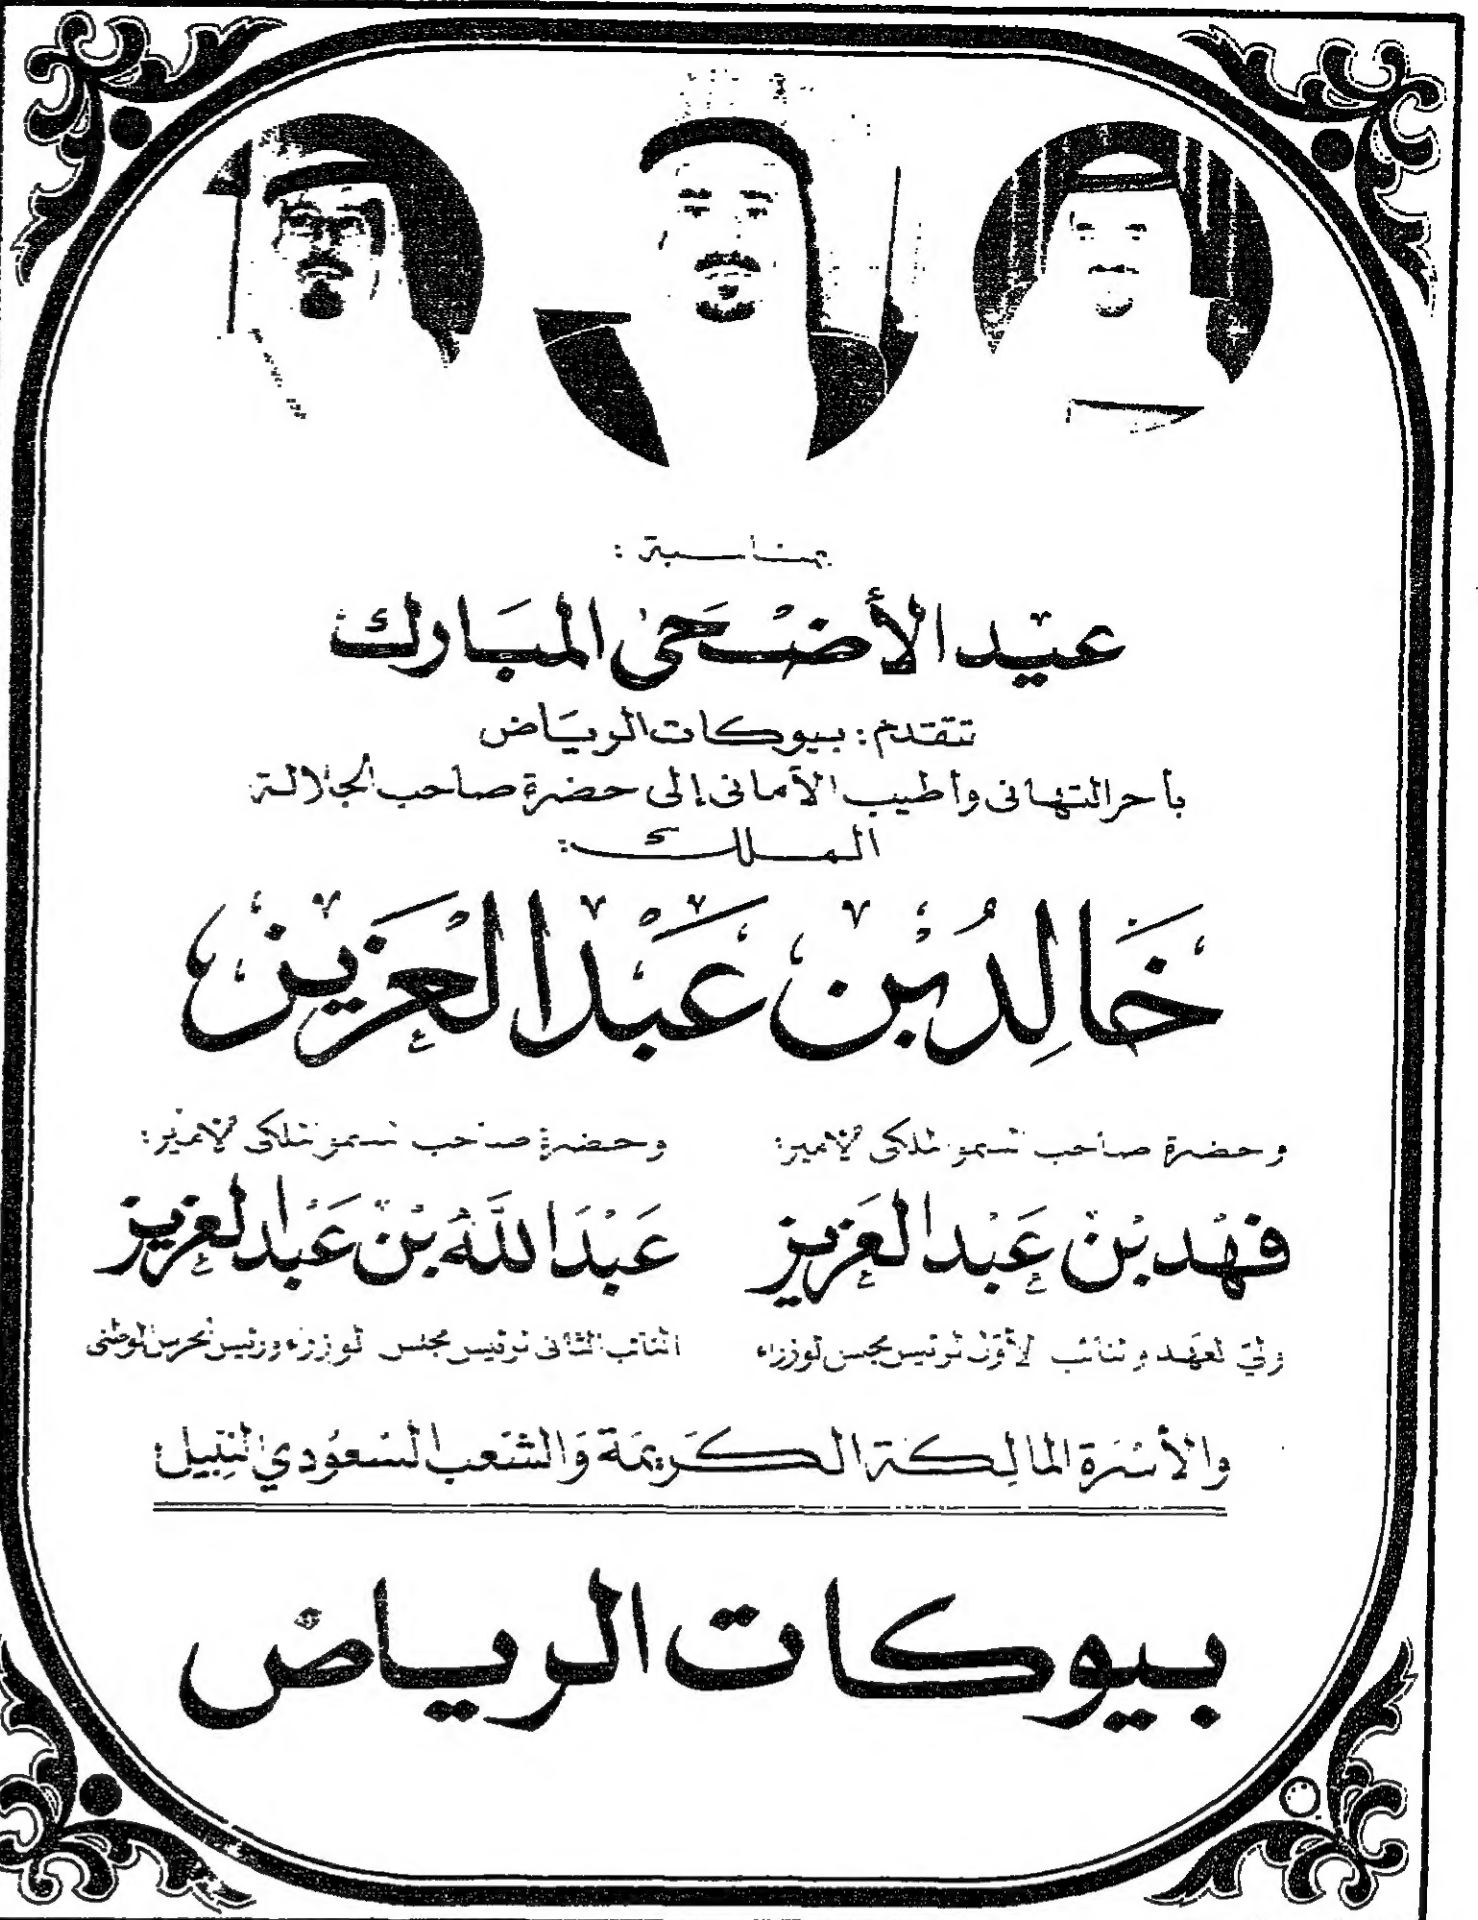 بمناسبة :
عيد الأضحى المبارك
تتقدم : بيوكات الرياض
بأحر التهاني وأطيب الأماني إلى حضرة صاحب الجلالة
الملك :
خَالِدُ بْن عَبْد العَزيز
وحضرة صاحب السمو الملكى الأمير :
فهْد بْن عَبْد العَزيز
ولي العهد والنائب الأول لرئيس مجلس الوزراء
وحضرة صاحب السمو الملكى الأمير :
عَبْدَ اللَّه بْن عَبْد العزيز
النائب الثانى لرئيس مجلس الوزراء ورئيس الحرس الوطنى
والأسْرَة المالِكَة الكَريمَة وَالشَعب السُعُودي النبِيل
بيوكات الرياض